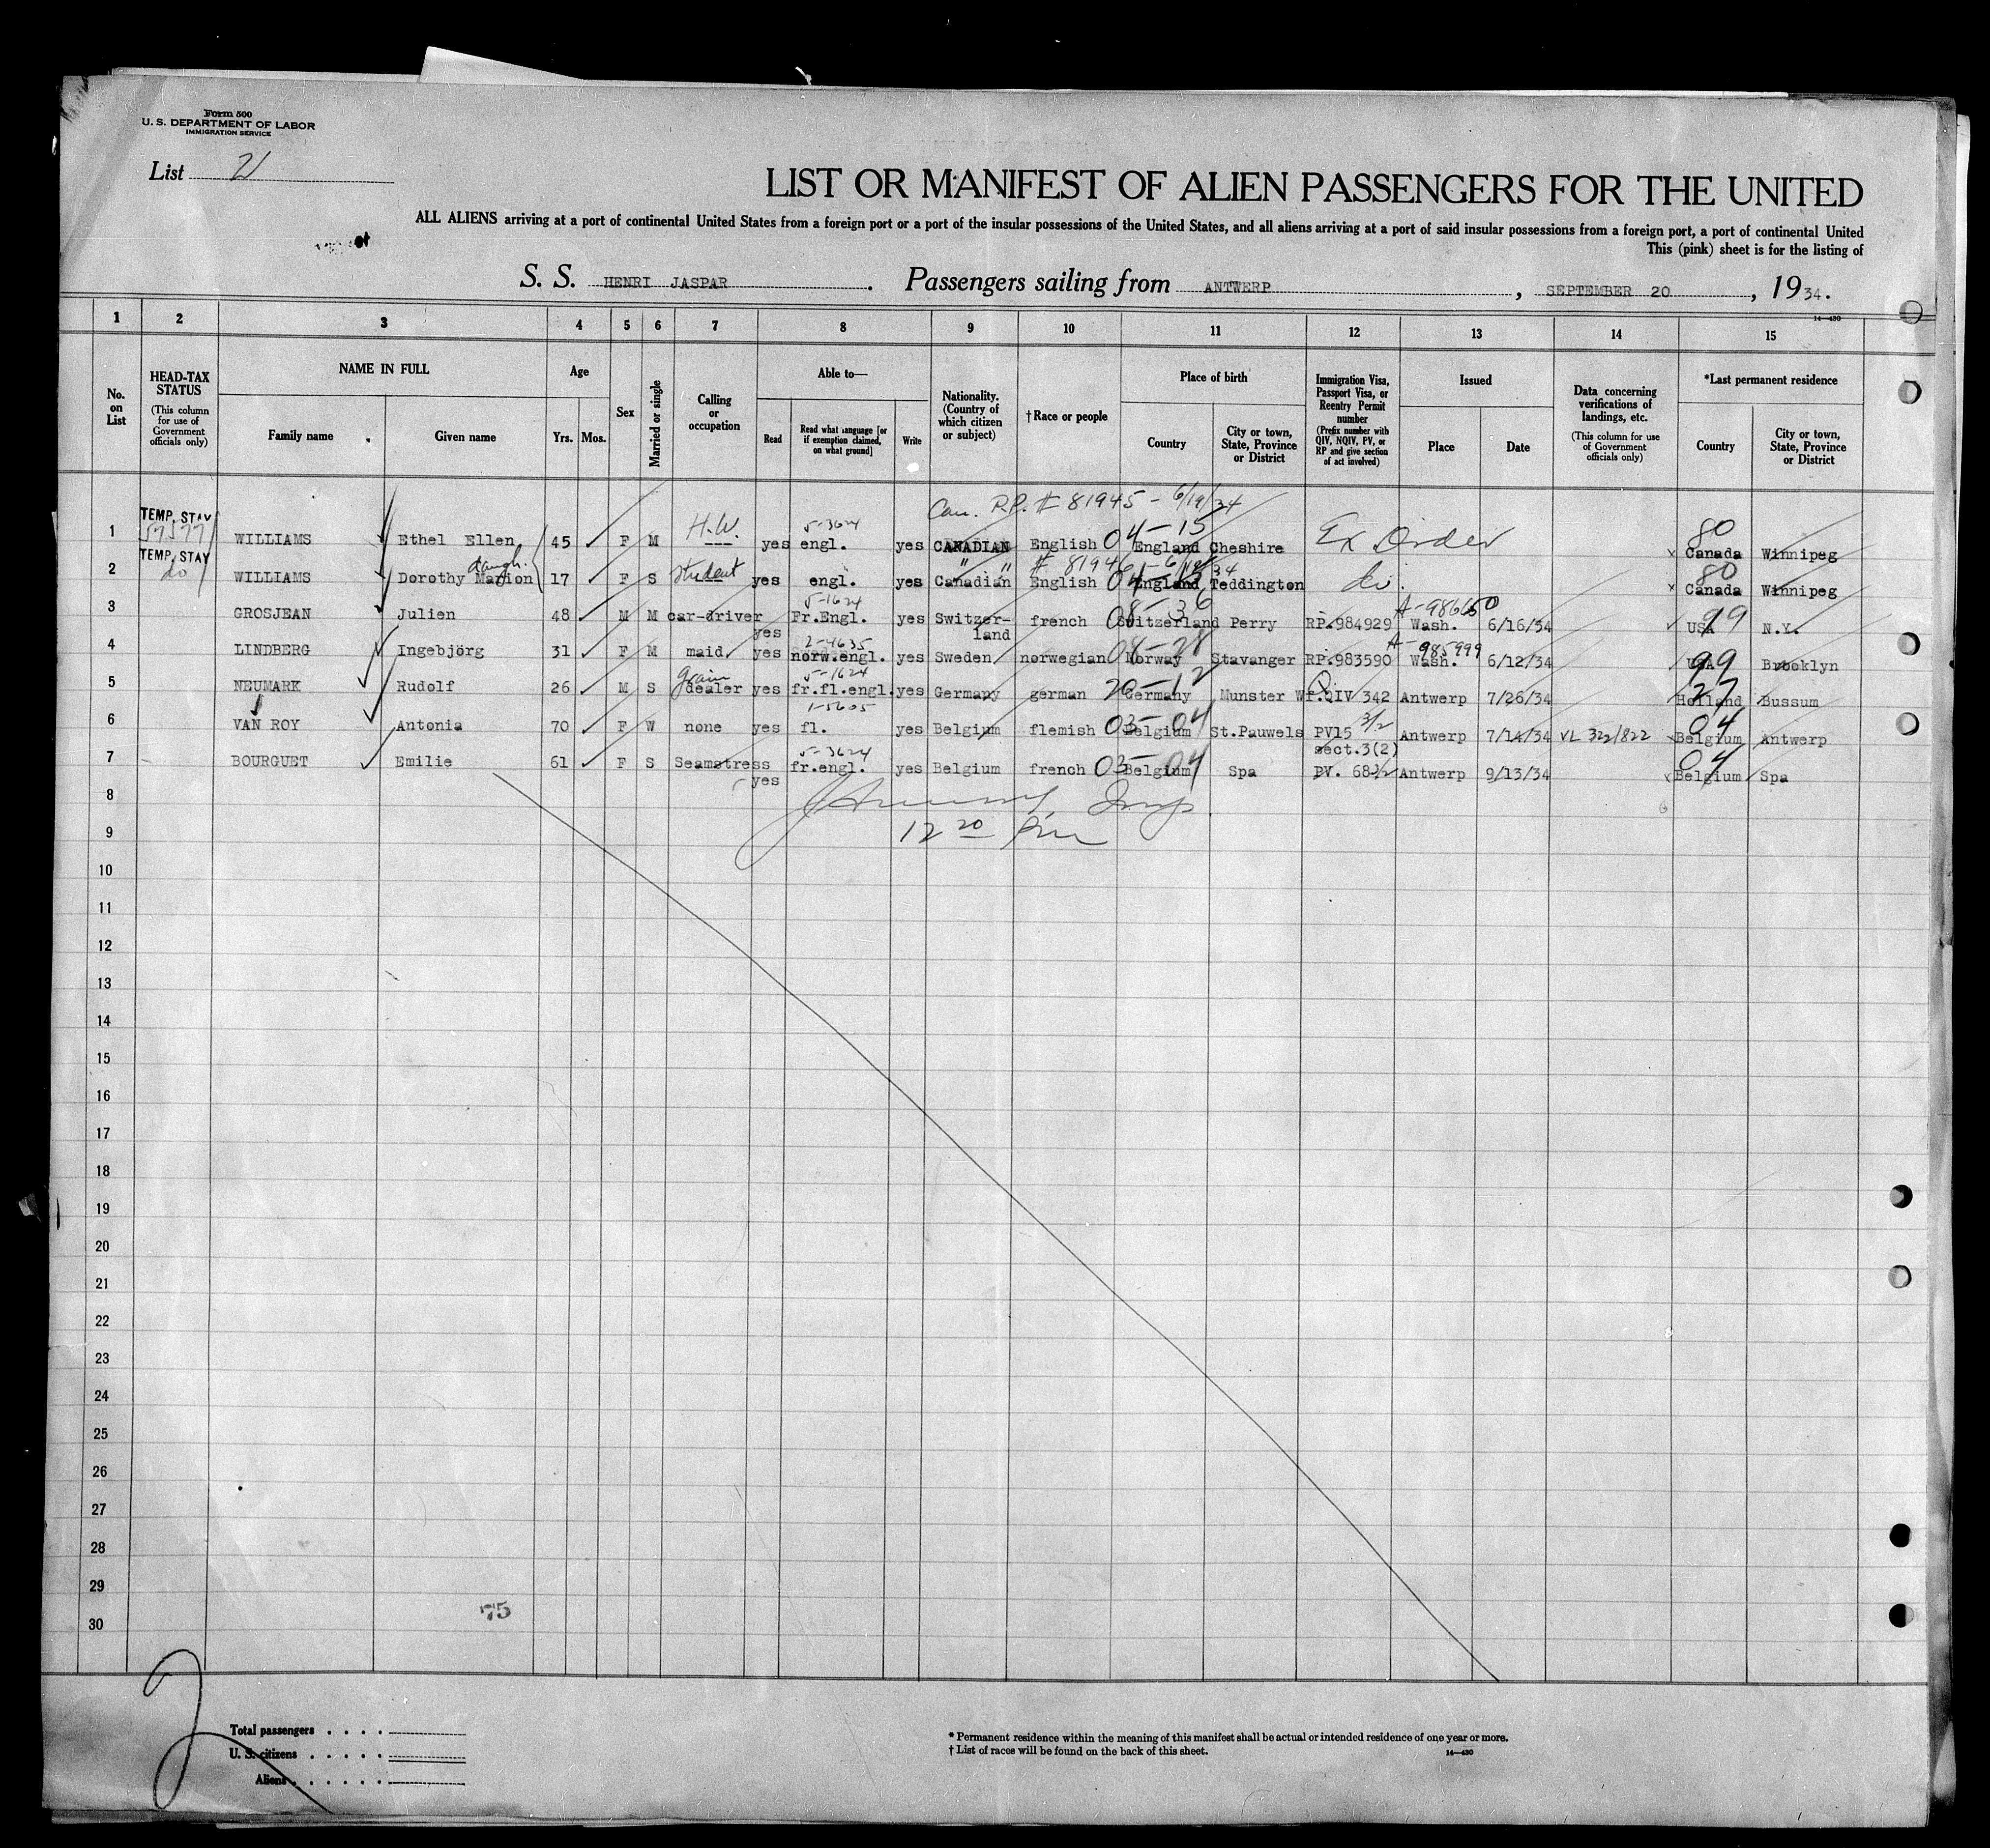 Form 500
U. S. DEPARTMENT OF LABOR
IMMIGRATION SERVICE
List
LIST OR MANIFEST OF ALIEN PASSENGERS FOR THE UNITED
ALL ALIENS arriving at a port of continental United States from a foreign port or a port of the insular possessions of the United States, and all aliens arriving at a port of said insular possessions from a foreign port, a port of continental United
This (pink) sheet is for the listing of
S. S. HENRI JASPAR. Passengers sailing from ANTWERP, SEPTEMBER 20, 1934.
14—430
1 2 3 4 5 6 7 8 9 10 11 12 13 14 15
No. on List
HEAD-TAX STATUS (This column for use of Government officials only)
NAME IN FULL
Family name
Given name
Age
Yrs. Mos.
Sex
Married or single
Calling or occupation
Able to—
Read
Read what language [or if exemption claimed, on what ground]
Write
Nationality. (Country of which citizen or subject)
†Race or people
Place of birth
Country
City or town, State, Province or District
Immigration Visa, Passport Visa, or Reentry Permit number (Prefix number with QIV, NQIV, PV, or RP and give section of act involved)
Issued
Place
Date
Data concerning verifications of landings, etc. (This column for use of Government officials only)
*Last permanent residence
Country
City or town, State, Province or District
Can. R.P. # 81945 - 6/19/34
TEMP. STAY H.W. 5-3624 04-15 80
1 WILLIAMS Ethel Ellen 45 F M --- yes engl. yes CANADIAN English England Cheshire Ex Order Canada Winnipeg
TEMP. STAY daugh. " " # 81946 - 6/19/34 80
2 do WILLIAMS Dorothy Marion 17 F S student yes engl. yes Canadian English England Teddington do. Canada Winnipeg
5-1624 08-36 A-986650 99
3 GROSJEAN Julien 48 M M car-driver yes Fr.Engl. yes Switzerland french Switzerland Perry RP.984929 Wash. 6/16/34 USA N.Y.
2-4635 08-28 A-985999 99
4 LINDBERG Ingebjörg 31 F M maid yes norw.engl. yes Sweden norwegian Norway Stavanger RP.983590 Wash. 6/12/34 USA Brooklyn
grain 5-1624 20-12 27
5 NEUMARK Rudolf 26 M S dealer yes fr.fl.engl. yes Germany german Germany Munster Wf. QIV 342 Antwerp 7/26/34 Holland Bussum
1-5605 03-04 3/2 04
6 VAN ROY Antonia 70 F W none yes fl. yes Belgium flemish Belgium St.Pauwels PV15 sect.3(2) Antwerp 7/14/34 VL 322/822 Belgium Antwerp
5-3624 03-04 04
7 BOURGUET Emilie 61 F S Seamstress yes fr.engl. yes Belgium french Belgium Spa PV. 68 Antwerp 9/13/34 Belgium Spa
8
9 12 20 Pm
10
11
12
13
14
15
16
17
18
19
20
21
22
23
24
25
26
27
28
29
75
30
2
Total passengers
U. S. citizens
Aliens
* Permanent residence within the meaning of this manifest shall be actual or intended residence of one year or more.
† List of races will be found on the back of this sheet.
14—430